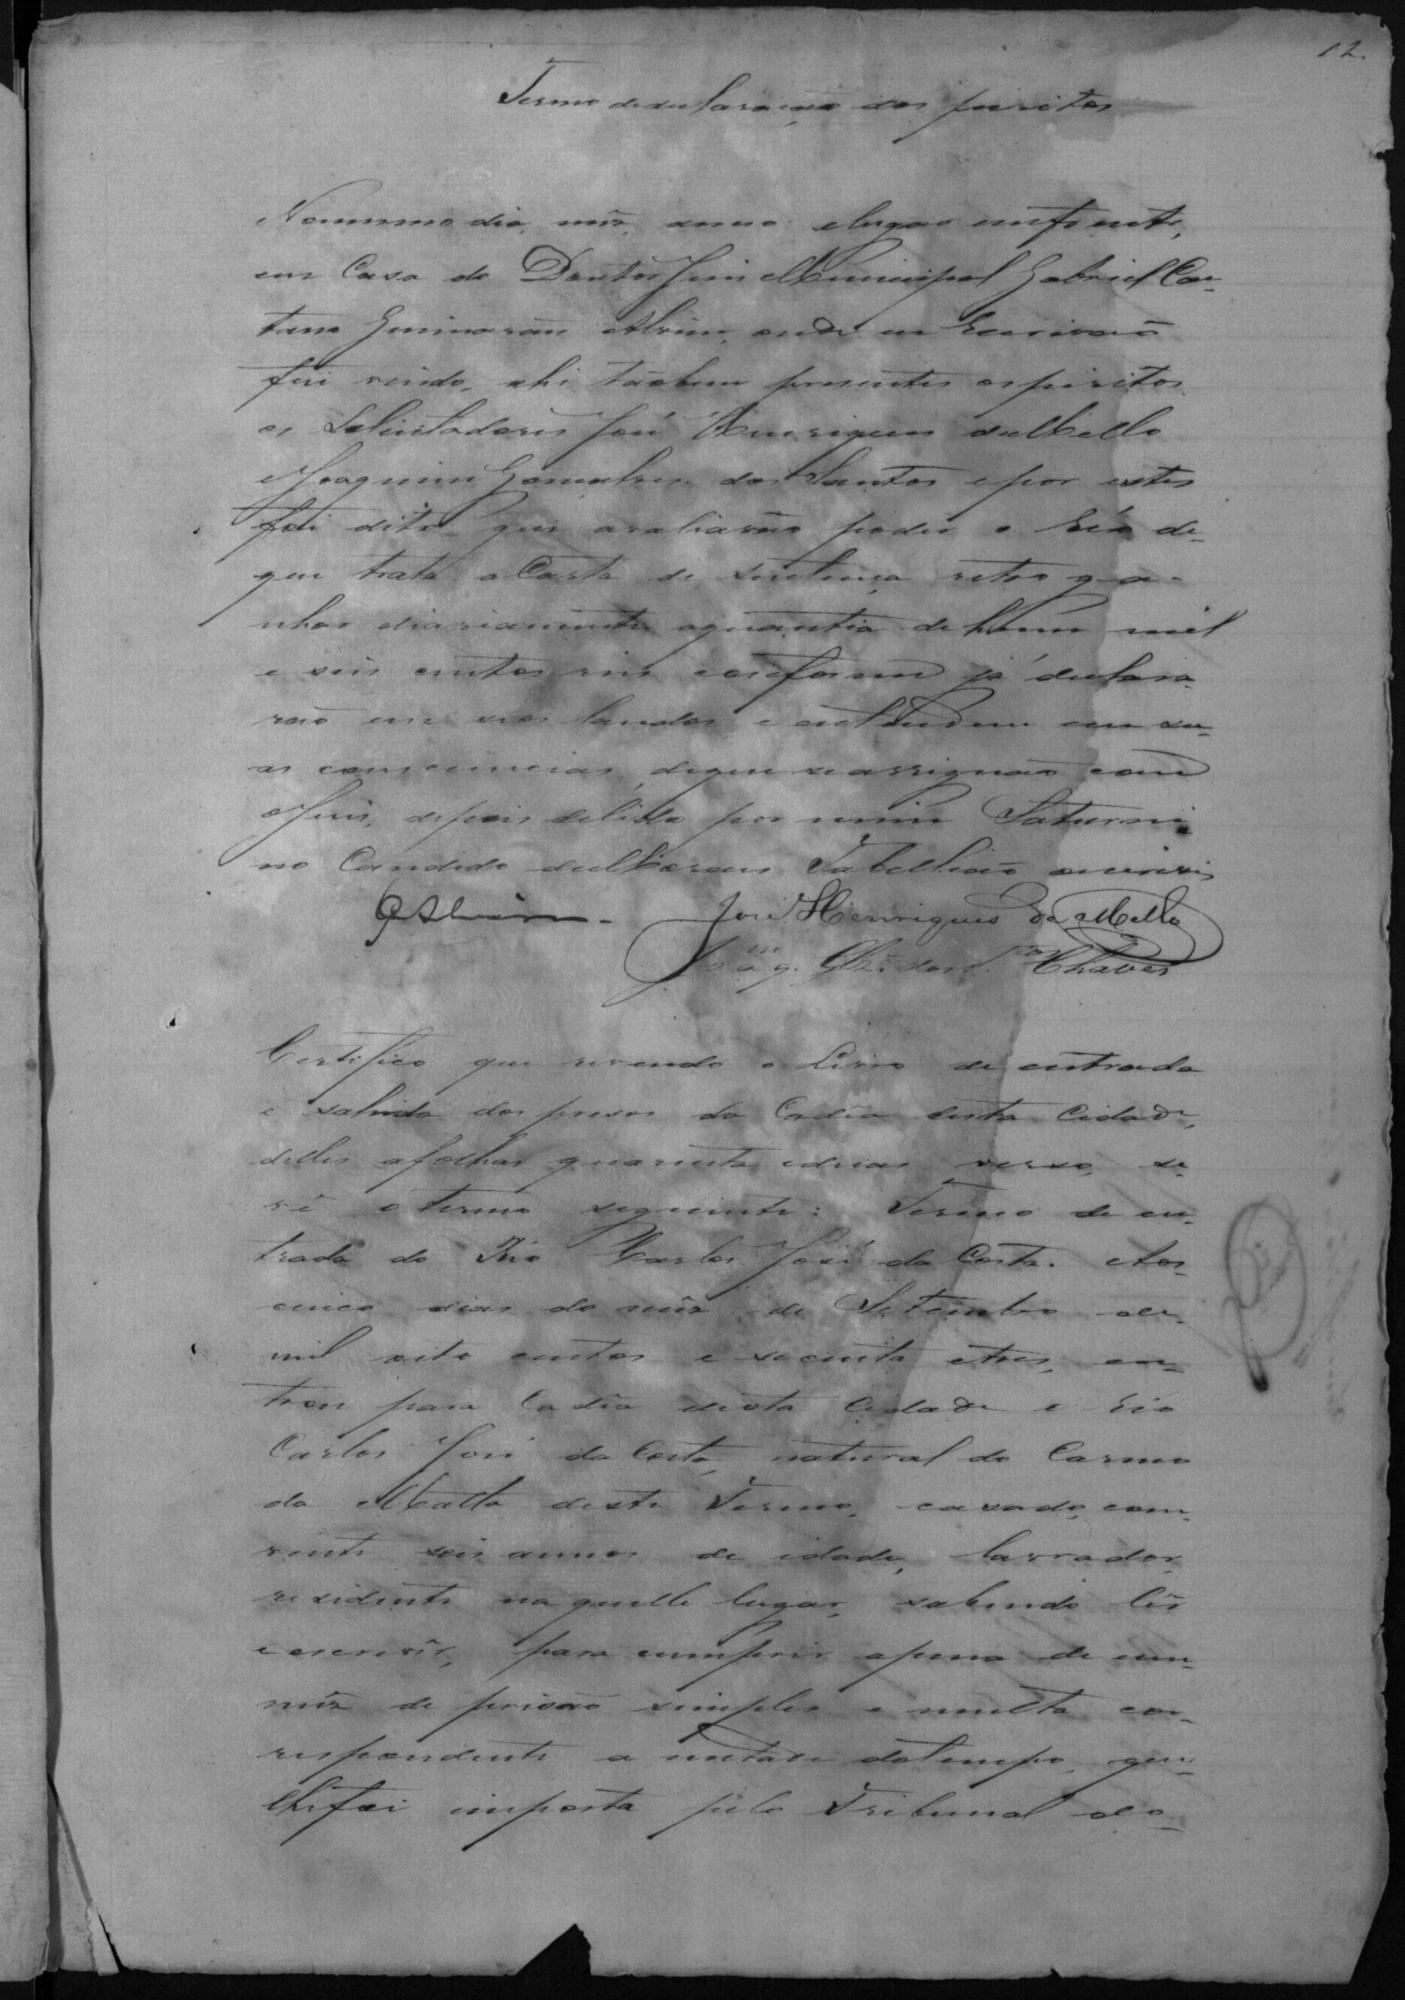 12.
Termo de declaração dos peritos
No mesmo dia, mês, anno e lugar
em Casa do Doutor Juis Municipal Gabriel Cae-
tano Guimarães Alvim, onde eu Escrivaõ
fui vindo, ahi taõbem presentes os peritos
os Solicitadores José Henriques de Mello
e Joaquim Gonçalves dos Santos e por estes
foi dito que avaliavaõ poder o Réo de
que trata a Carta de Sentença retro ga-
nhar diariamente a quantia de hum mil
e seis centos reis conforme já declara-
raõ em seos laudos e entendem em su-
as consciencias, de que se assignaõ com
o Juis, depois de lido por mim Saturni
no Candido de Moraes Tabelliaõ escrivi
GAlvim. José Henriques de Mello
Joaq.m Glz. dos S.tos Chaves
Certifico que revendo o Livro de entrada
e sahida dos presos da Cadêa desta Cidade,
delles a folhas quarenta e duas verso, se
vê o termo seguinte: Termo de en-
trada do Réo Carlos José da Costa. Aos
cinco dias do mês de Setembro de
mil oito centos e secenta e tres, en-
trou para Cadêa desta Cidade o Réo
Carlos José da Costa, natural do Carmo
da Matta deste Termo, casado, com
vinte seis annos de idade, lavrador,
residente naquelle lugar, sabendo lêr
e escrevêr, para cumprir a pena de um
mês de prisaõ simples e multa cor-
respondente a metade do tempo, que
lhe foi imposta pelo Tribunal do